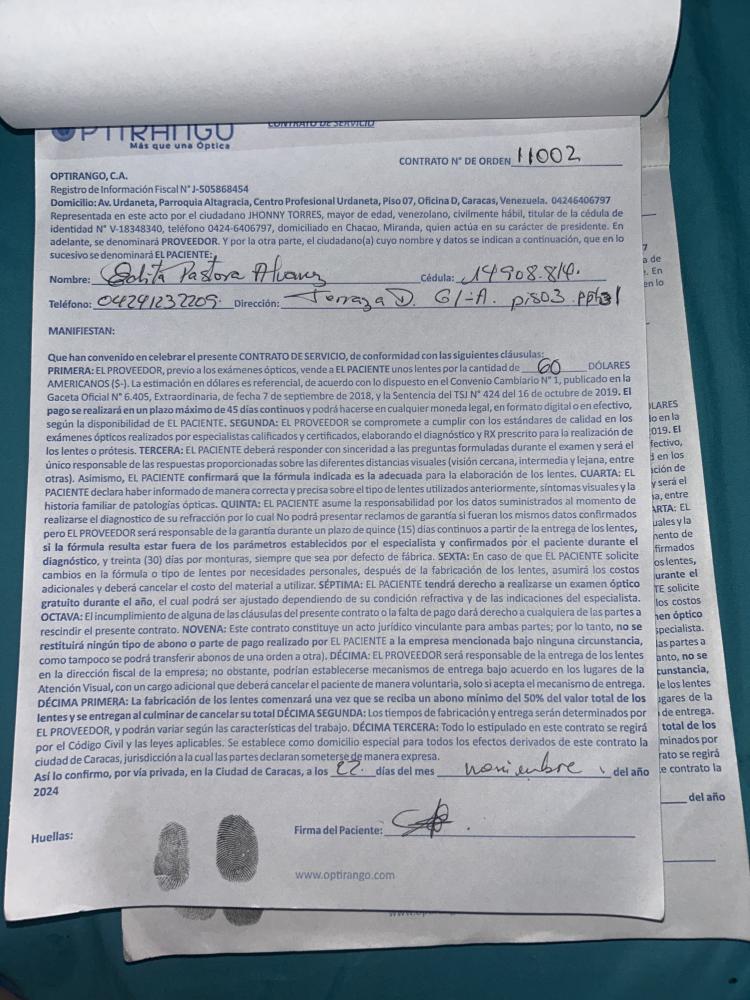 OPTIRANGO
Más que una Óptica
CONTRATO DE SERVICIO
CONTRATO N° DE ORDEN 11002
OPTIRANGO, C.A.
Registro de Información Fiscal N° J-505868454
Domicilio: Av. Urdaneta, Parroquia Altagracia, Centro Profesional Urdaneta, Piso 07, Oficina D, Caracas, Venezuela. 04246406797
Representada en este acto por el ciudadano JHONNY TORRES, mayor de edad, venezolano, civilmente hábil, titular de la cédula de
identidad N° V-18348340, teléfono 0424-6406797, domiciliado en Chacao, Miranda, quien actúa en su carácter de presidente. En
adelante, se denominará PROVEEDOR. Y por la otra parte, el ciudadano(a) cuyo nombre y datos se indican a continuación, que en lo
sucesivo se denominará EL PACIENTE:
Nombre: Pastora Alvarez Cédula: 14908.814.
Teléfono: 04241237209 Dirección: Terraza D. G/-A. piso3
MANIFIESTAN:
Que han convenido en celebrar el presente CONTRATO DE SERVICIO, de conformidad con las siguientes cláusulas:
PRIMERA: EL PROVEEDOR, previo a los exámenes ópticos, vende a EL PACIENTE unos lentes por la cantidad de 60 DÓLARES
AMERICANOS ($-). La estimación en dólares es referencial, de acuerdo con lo dispuesto en el Convenio Cambiario N° 1, publicado en la
Gaceta Oficial N° 6.405, Extraordinaria, de fecha 7 de septiembre de 2018, y la Sentencia del TSJ N° 424 del 16 de octubre de 2019. El
pago se realizará en un plazo máximo de 45 días continuos y podrá hacerse en cualquier moneda legal, en formato digital o en efectivo,
según la disponibilidad de EL PACIENTE. SEGUNDA: EL PROVEEDOR se compromete a cumplir con los estándares de calidad en los
exámenes ópticos realizados por especialistas calificados y certificados, elaborando el diagnóstico y RX prescrito para la realización de
los lentes o prótesis. TERCERA: EL PACIENTE deberá responder con sinceridad a las preguntas formuladas durante el examen y será el
único responsable de las respuestas proporcionadas sobre las diferentes distancias visuales (visión cercana, intermedia y lejana, entre
otras). Asimismo, EL PACIENTE confirmará que la fórmula indicada es la adecuada para la elaboración de los lentes. CUARTA: EL
PACIENTE declara haber informado de manera correcta y precisa sobre el tipo de lentes utilizados anteriormente, síntomas visuales y la
historia familiar de patologías ópticas. QUINTA: EL PACIENTE asume la responsabilidad por los datos suministrados al momento de
realizarse el diagnostico de su refracción por lo cual No podrá presentar reclamos de garantía si fueran los mismos datos confirmados
pero EL PROVEEDOR será responsable de la garantía durante un plazo de quince (15) días continuos a partir de la entrega de los lentes,
si la fórmula resulta estar fuera de los parámetros establecidos por el especialista y confirmados por el paciente durante el
diagnóstico, y treinta (30) días por monturas, siempre que sea por defecto de fábrica. SEXTA: En caso de que EL PACIENTE solicite
cambios en la fórmula o tipo de lentes por necesidades personales, después de la fabricación de los lentes, asumirá los costos
adicionales y deberá cancelar el costo del material a utilizar. SÉPTIMA: EL PACIENTE tendrá derecho a realizarse un examen óptico
gratuito durante el año, el cual podrá ser ajustado dependiendo de su condición refractiva y de las indicaciones del especialista.
OCTAVA: El incumplimiento de alguna de las cláusulas del presente contrato o la falta de pago dará derecho a cualquiera de las partes a
rescindir el presente contrato. NOVENA: Este contrato constituye un acto jurídico vinculante para ambas partes; por lo tanto, no se
restituirá ningún tipo de abono o parte de pago realizado por EL PACIENTE a la empresa mencionada bajo ninguna circunstancia,
como tampoco se podrá transferir abonos de una orden a otra). DÉCIMA: EL PROVEEDOR será responsable de la entrega de los lentes
en la dirección fiscal de la empresa; no obstante, podrían establecerse mecanismos de entrega bajo acuerdo en los lugares de la
Atención Visual, con un cargo adicional que deberá cancelar el paciente de manera voluntaria, solo si acepta el mecanismo de entrega.
DÉCIMA PRIMERA: La fabricación de los lentes comenzará una vez que se reciba un abono mínimo del 50% del valor total de los
lentes y se entregan al culminar de cancelar su total DÉCIMA SEGUNDA: Los tiempos de fabricación y entrega serán determinados por
EL PROVEEDOR, y podrán variar según las características del trabajo. DÉCIMA TERCERA: Todo lo estipulado en este contrato se regirá
por el Código Civil y las leyes aplicables. Se establece como domicilio especial para todos los efectos derivados de este contrato la
ciudad de Caracas, jurisdicción a la cual las partes declaran someterse de manera expresa.
Así lo confirmo, por vía privada, en la Ciudad de Caracas, a los 22 días del mes noviembre del año
2024
Huellas:
Firma del Paciente:
www.optirango.com
del año